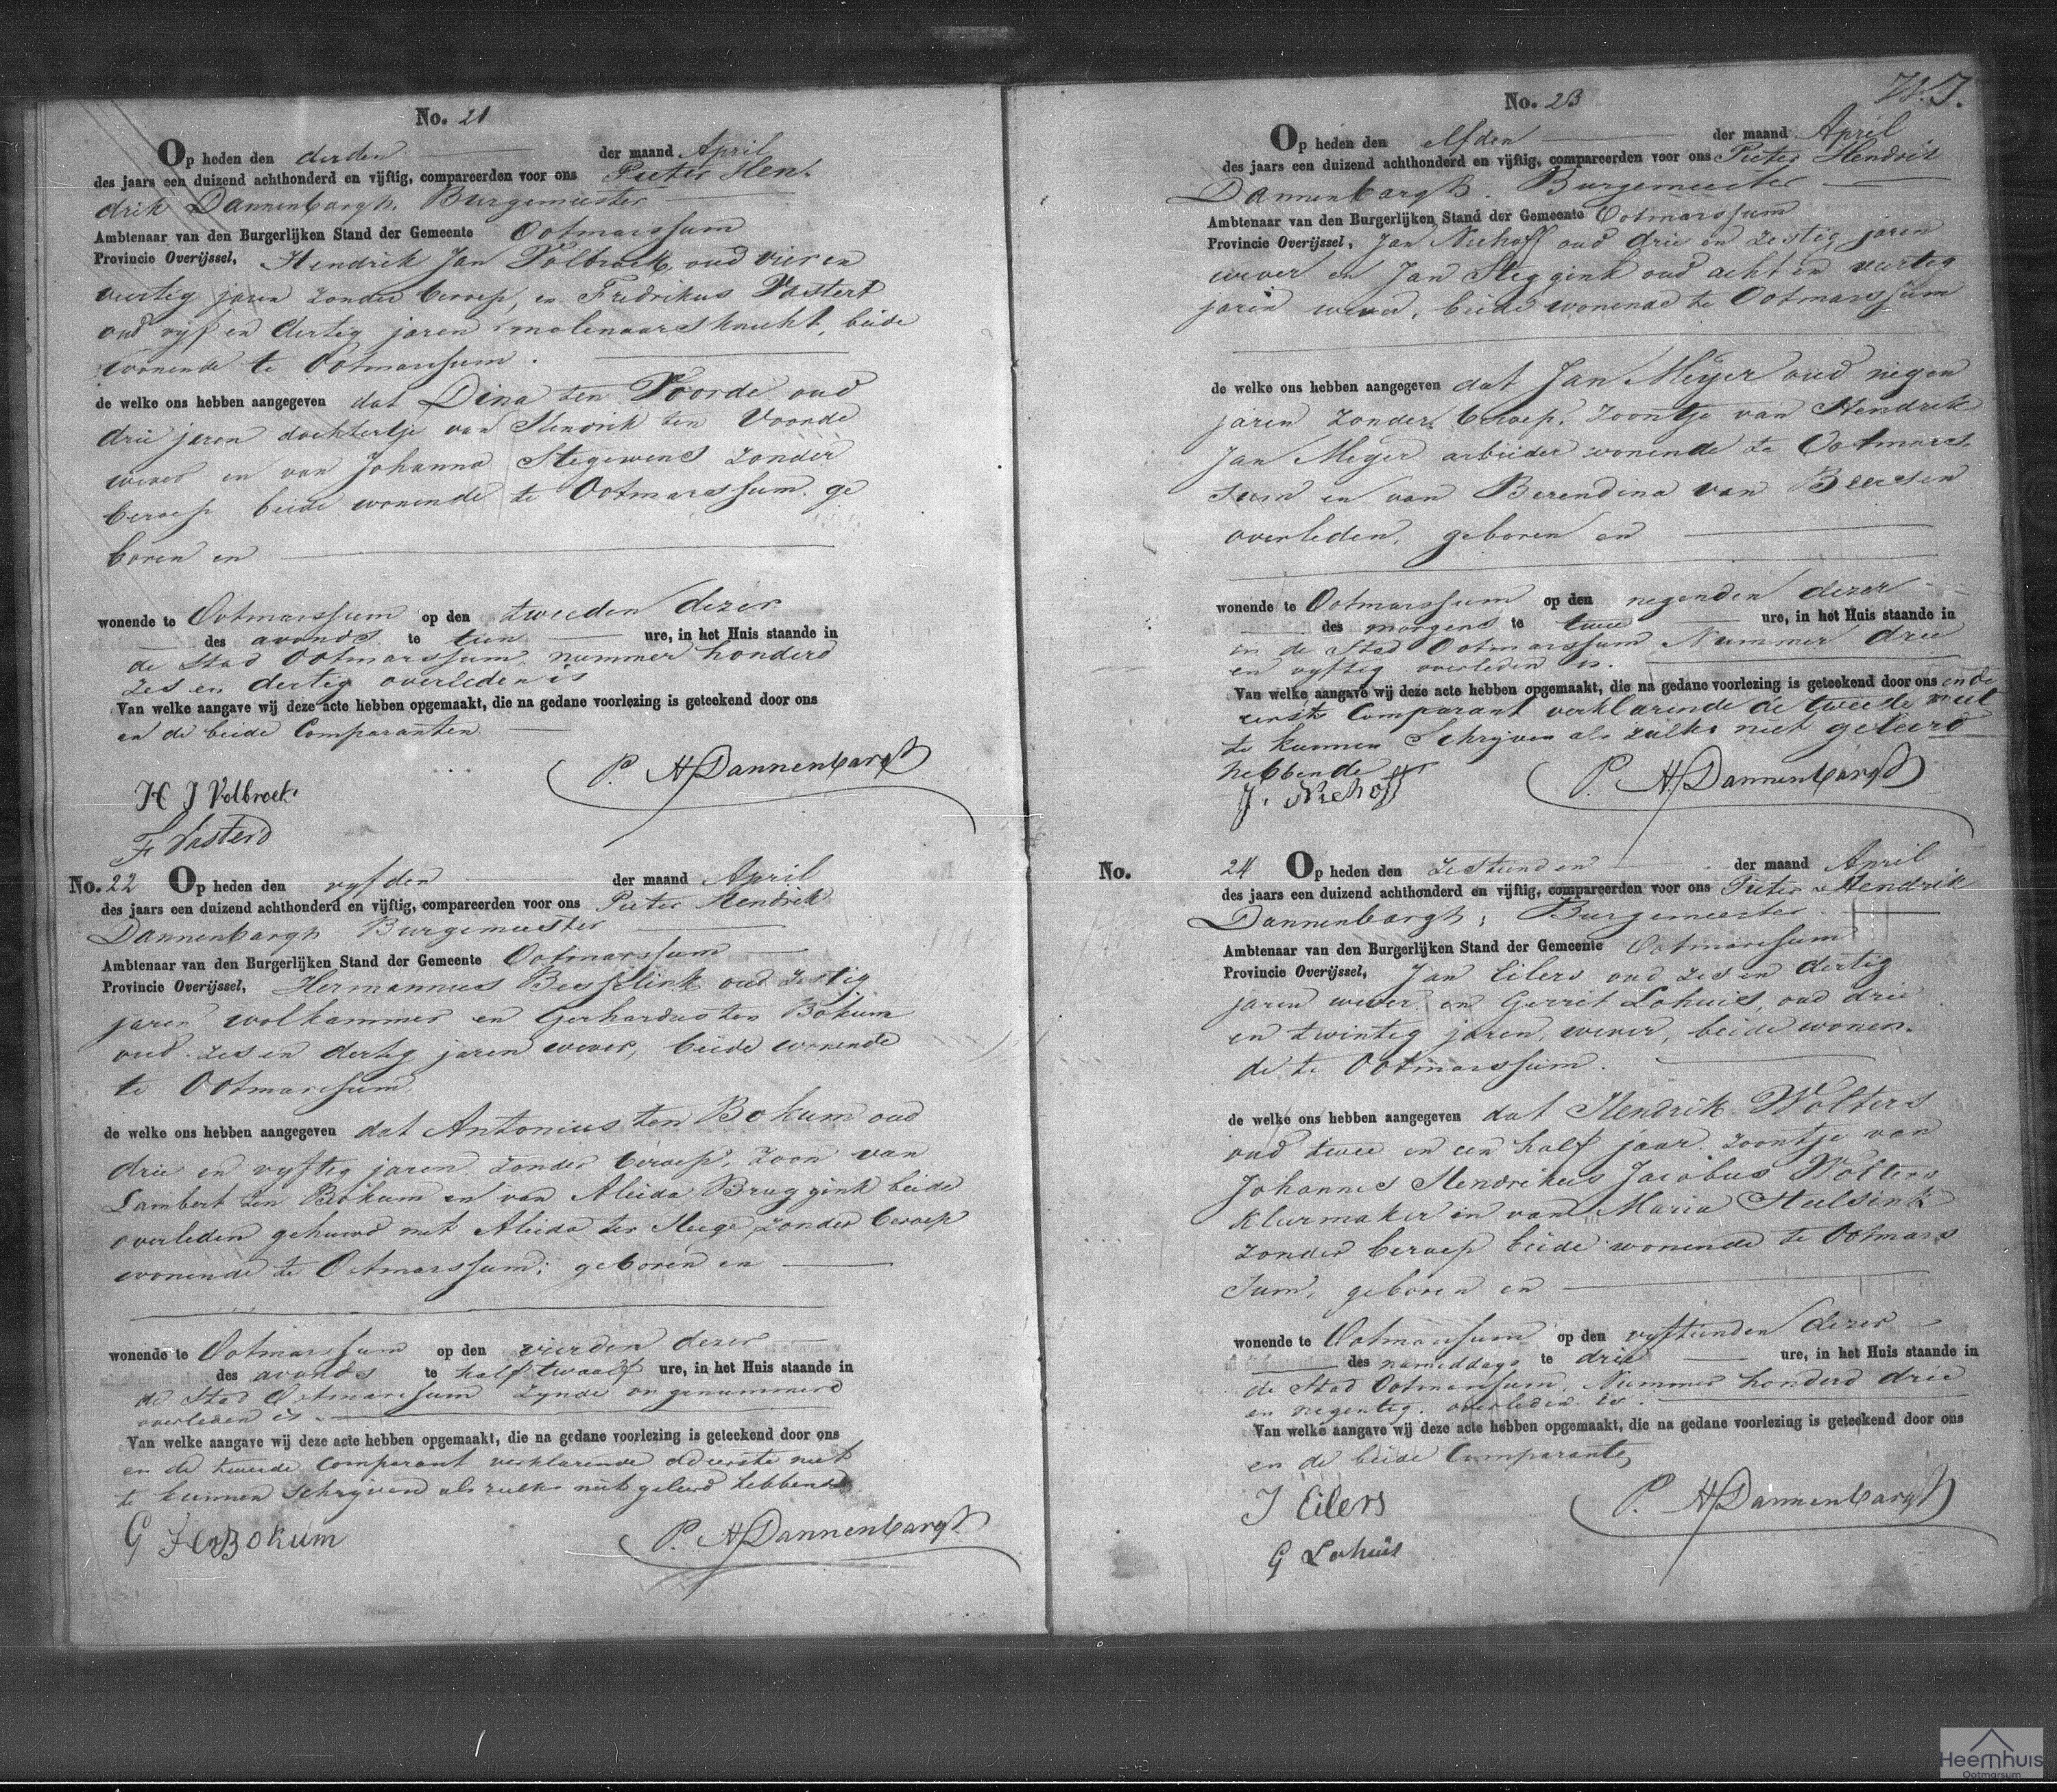 No. 21
Op heden den derden der maand April
des jaars een duizend achthonderd en vijftig, compareerden voor ons Pieter Hen-
drik Dannenbargh, Burgemeester
Ambtenaar van den Burgerlijken Stand der Gemeente Ootmarssum
Provincie Overijssel, Hendrik Jan Volbroek, oud vier en
veertig jaren zonder beroep, en Fredrikus Vastert
oud vyf en dertig jaren molenaarsknecht, beide
wonende te Ootmarssum.
de welke ons hebben aangegeven dat Dina ten Voorde oud
drie jaren dochtertje van Hendrik ten Voorde
wever en van Johanna Stegewens zonder
beroep beide wonende te Ootmarssum, ge
boren en
wonende te Ootmarssum op den tweeden dezer
des avonds te tien ure, in het Huis staande in
de Stad Ootmarssum, nummer honderd
zes en dertig overleden is
Van welke aangave wij deze acte hebben opgemaakt, die na gedane voorlezing is geteekend door ons
en de beide Comparanten
P. H Dannenbargh
H J Volbroek
F Vasterd
No. 22 Op heden den vyfden der maand April
des jaars een duizend achthonderd en vijftig, compareerden voor ons Pieter Hendrik
Dannenbargh Burgemeester
Ambtenaar van den Burgerlijken Stand der Gemeente Ootmarssum
Provincie Overijssel, Hermannus Besselink oud zestig
jaren wolkammer en Gerhardus ten Bokum
oud zes en dertig jaren wever, beide wonende
te Ootmarssum
de welke ons hebben aangegeven dat Antonius ten Bokum oud
drie en vyftig jaren zonder beroep, zoon van
Lambert ten Bokum en van Aleida Bruggink beide
overleden gehuwd met Aleida ter Stege zonder beroep
wonende te Ootmarssum; geboren en
wonende te Ootmarssum op den vierden dezer
des avonds te half twaalf ure, in het Huis staande in
de Stad Ootmarssum zynde ongenummerd
overleden is.
Van welke aangave wij deze acte hebben opgemaakt, die na gedane voorlezing is geteekend door ons
en de tweede comparant verklarende de eerste niet
te kunnen schryven als zulks niet geleerd hebbende
G ten Bokum
P. H Dannenbargh
No. 23
Op heden den elfden der maand April
des jaars een duizend achthonderd en vijftig, compareerden voor ons Pieter Hendrik
Dannenbargh. Burgemeester
Ambtenaar van den Burgerlijken Stand der Gemeente Ootmarssum
Provincie Overijssel, Jan Niehoff oud drie en zestig jaren
wever en Jan Steggink oud acht en veertig
jaren wever, beide wonende te Ootmarssum
de welke ons hebben aangegeven dat Jan Meyer oud negen
jaren zonder beroep. zoontje van Hendrik
Jan Meyer arbeider wonende te Ootmars-
sum en van Berendina van Beersen
overleden, geboren en
wonende te Ootmarssum op den negenden dezer
des morgens te twee ure, in het Huis staande in
in de Stad Ootmarssum Nummer drie
en vyftig overleden is.
Van welke aangave wij deze acte hebben opgemaakt, die na gedane voorlezing is geteekend door ons en de
eerste Comparant verklarende de tweede niet
te kunnen Schryven als zulks niet geleerd
hebbende
J. Niehoff
P. H Dannenbargh
No. 24 Op heden den zestienden der maand April
des jaars een duizend achthonderd en vijftig, compareerden voor ons Pieter Hendrik
Dannenbargh, Burgemeester
Ambtenaar van den Burgerlijken Stand der Gemeente Ootmarssum
Provincie Overijssel, Jan Eilers oud zes en dertig
jaren wever en Gerrit Lohuis, oud drie
en twintig jaren, wever, beide wonen-
de te Ootmarssum.
de welke ons hebben aangegeven dat Hendrik Wolters
oud twee en een half jaar zoontje van
Johannes Hendrikus Jacobus Wolters
kleermaker en van Maria Hulsink
zonder beroep beide wonende te Ootmars
sum, geboren en
wonende te Ootmarssum op den vyftienden dezer
des nameddags te drie ure, in het Huis staande in
de Stad Ootmarssum, Nummer honderd drie
en negentig. overleden is.
Van welke aangave wij deze acte hebben opgemaakt, die na gedane voorlezing is geteekend door ons
en de beide Comparanten
J Eilers
P. H Dannenbargh
G Lohuis
Heemhuis
Ootmarsum